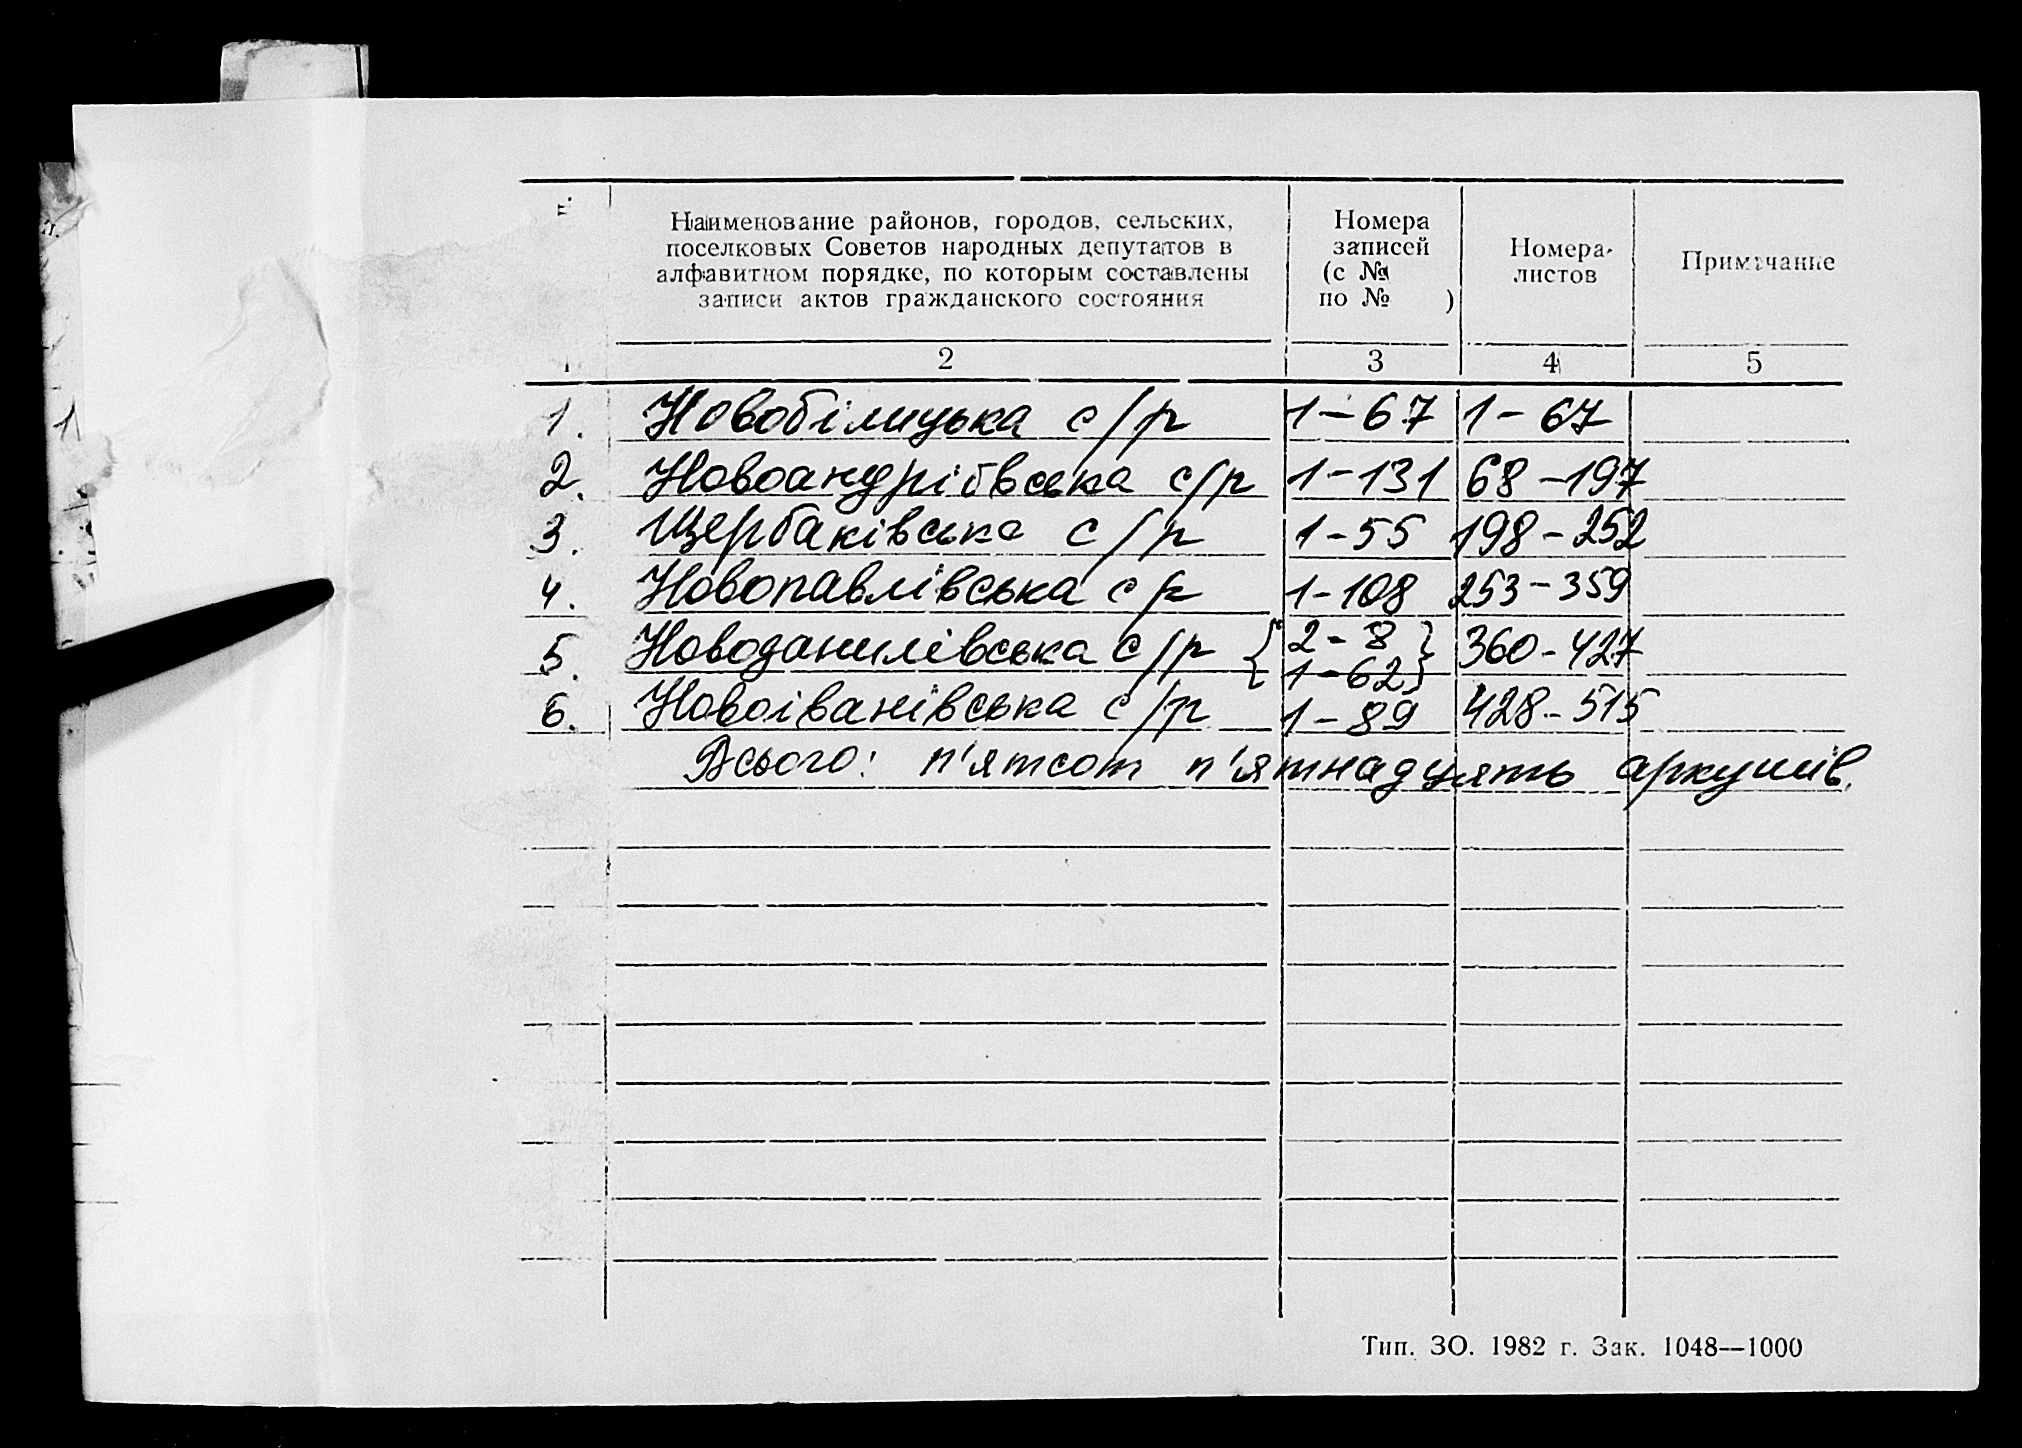 п.
Наименование районов, городов, сельских,
поселковых Советов народных депутатов в
алфавитном порядке, по которым составлены
записи актов гражданского состояния
Номера
записей
(с №
по № )
Номера
листов
Примечание
1 2 3 4 5
1. Новобілицька с/р 1-67 1-67
2. Новоандріївська с/р 1-131 68-197
3. Щербаківська с/р 1-55 198-252
4. Новопавлівська с/р 1-108 253-359
5. Новоданилівська с/р { 2-8 } 360-427
{ 1-62 }
6. Новоіванівська с/р 1-89 428-515
Всього: п'ятсот п'ятнадцять аркушів.
Тип. ЗО. 1982 г. Зак. 1048—1000